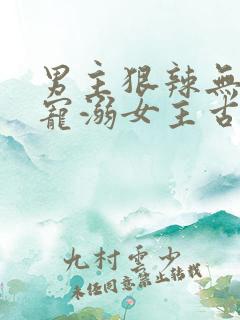 男主狠辣無
寵溺女主古
九村雲少
未經同意禁止轉載